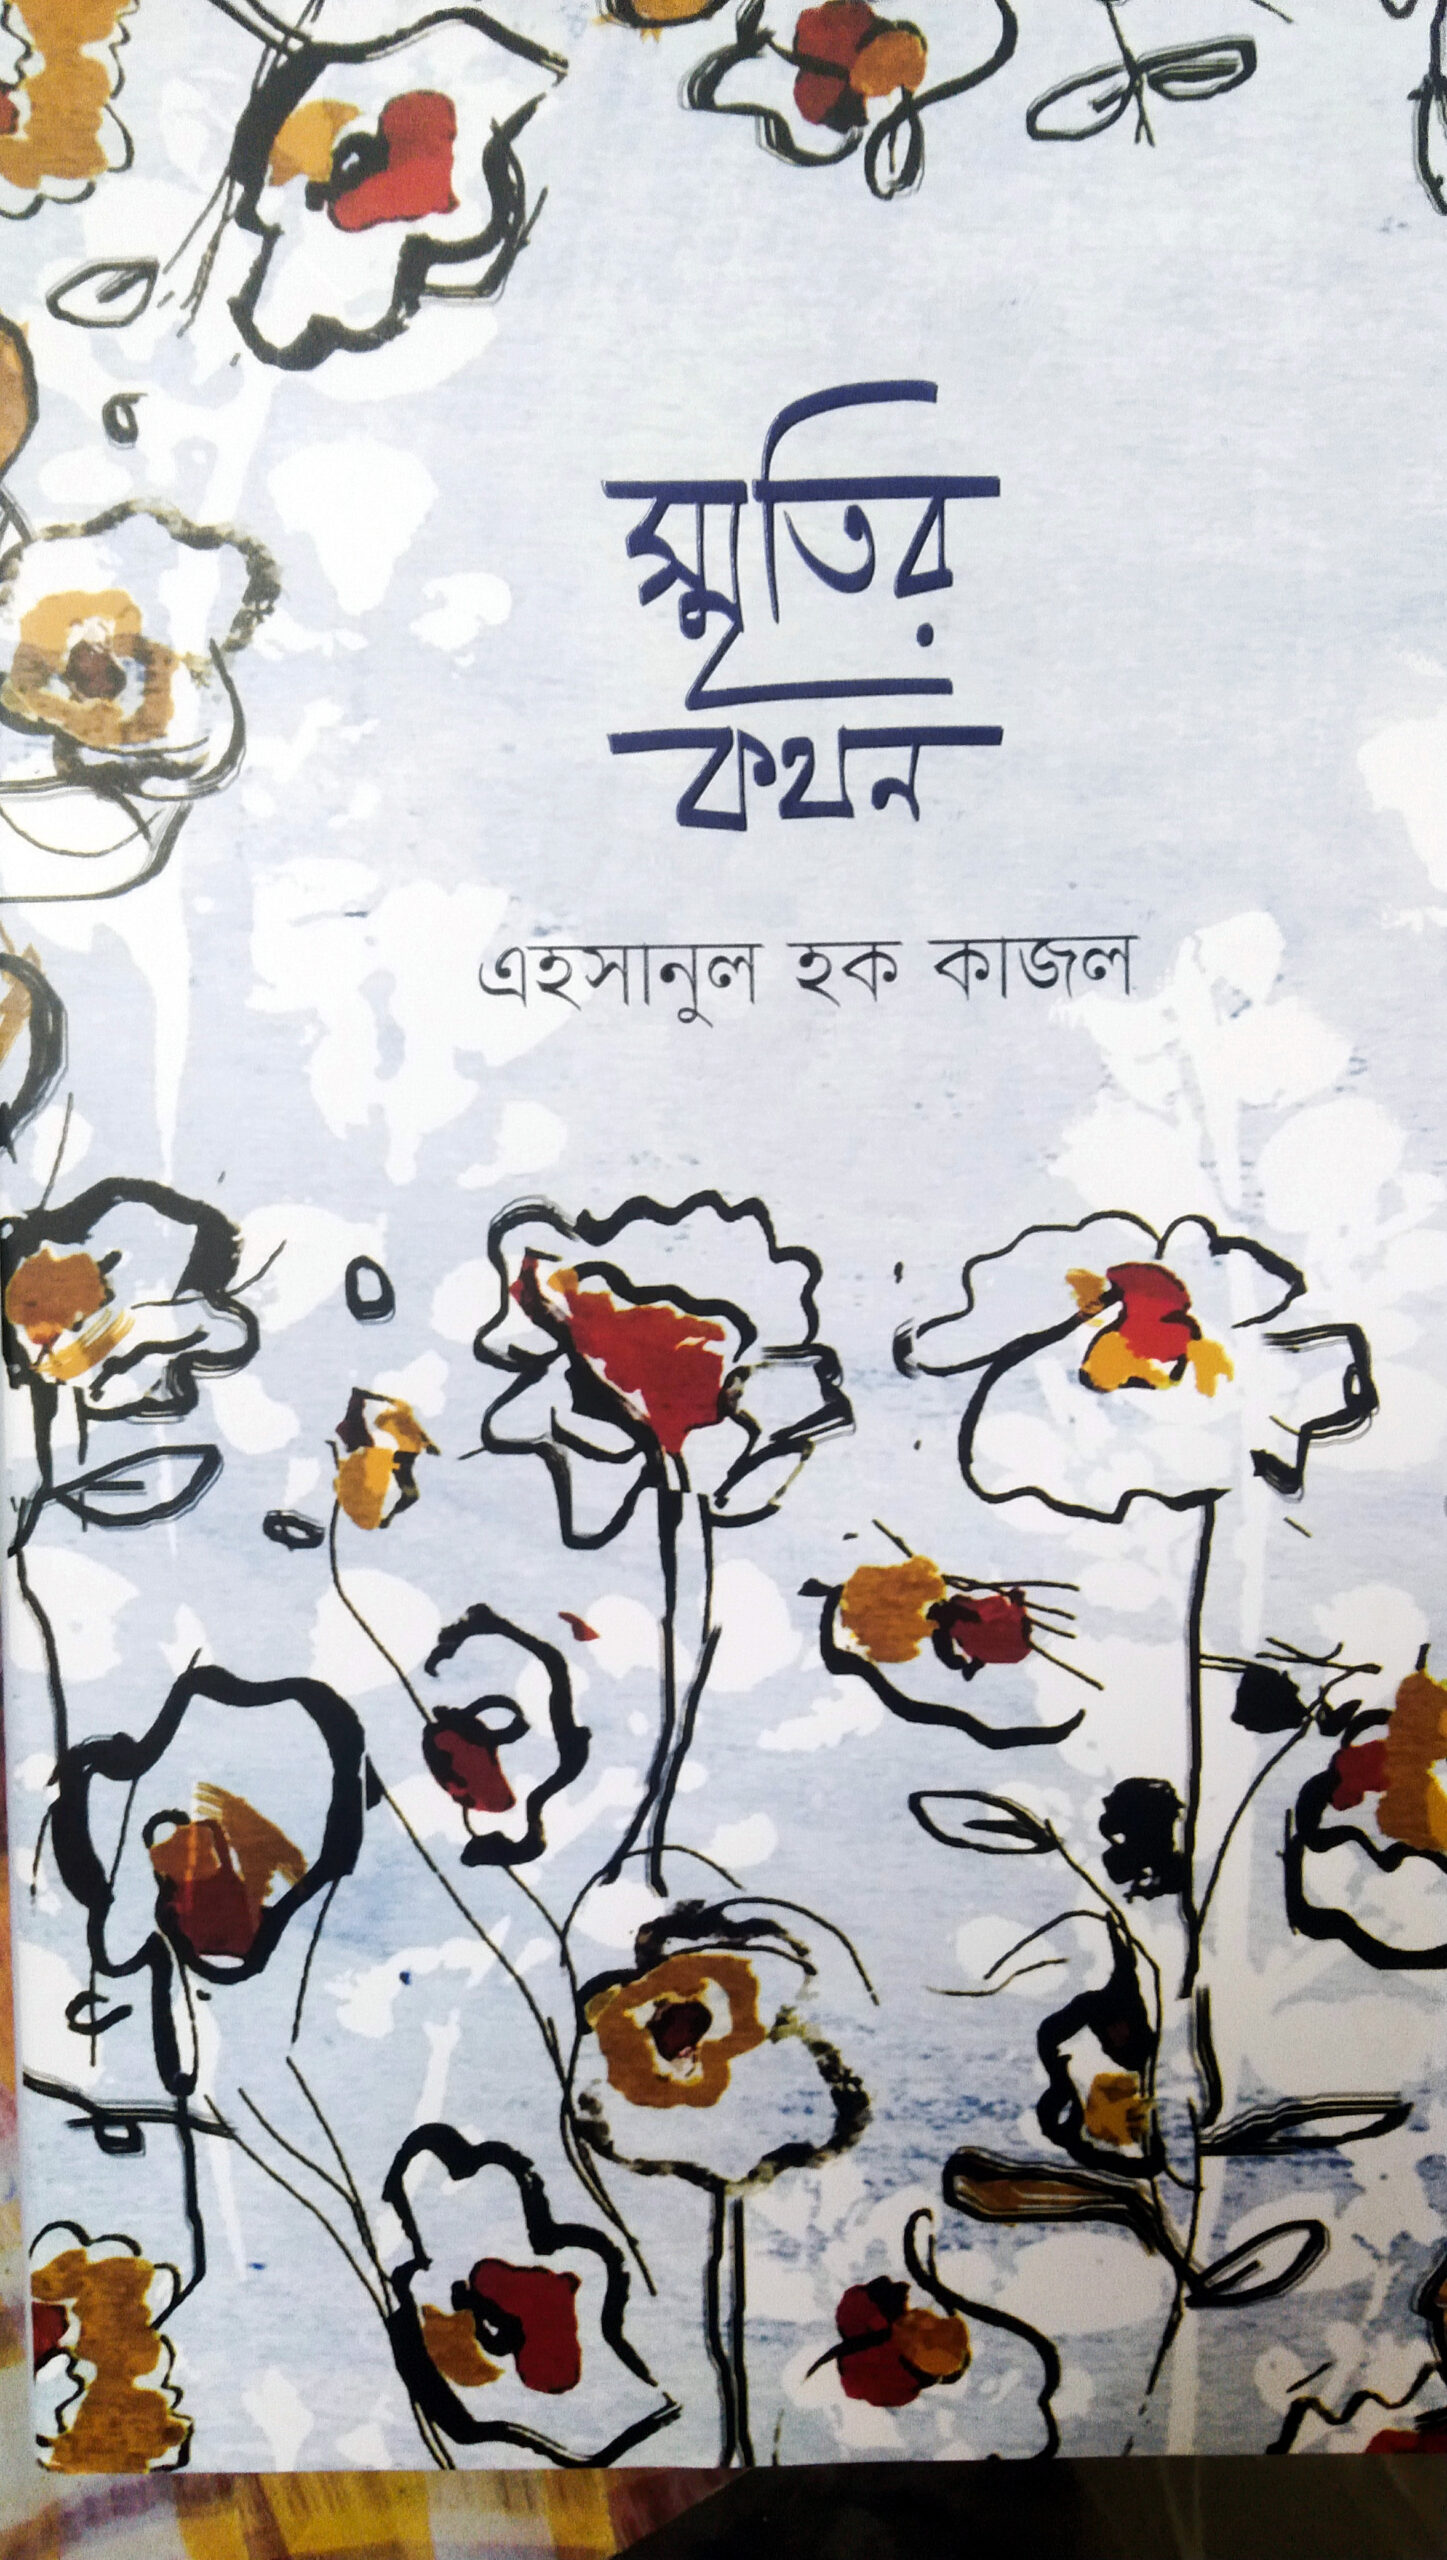 স্মৃতির
কথন
এহসানুল হক কাজল